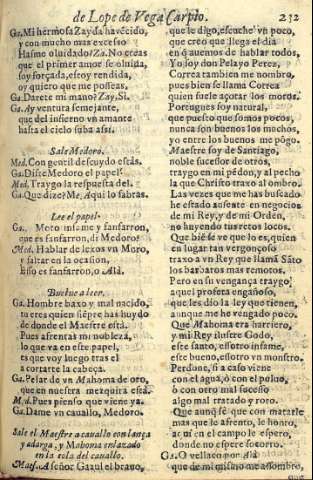 de Lope de Vega Carpio. 232
Ga. Mi hermosa Zayda ha vécido,
y con mucho mas excesso
Hasme oluidado? Za. No creas
que el primer amor se oluida,
soy forçada, estoy rendida,
oy quiero que me posseas.
Ga. Darete mi mano? Zay. Si.
Ga. Ay ventura semejante,
que del infierno vn amante
hasta el cielo suba assi.
Sale Medoro.
Med. Con gentil descuydo estâs.
Ga. Diste Medoro el papel?
Med. Traygo la respuesta del.
Ga. Que dize? Me. Aqui lo sabras.
Lee el papel.
Ga. Moro infame y fanfarron,
que es fanfarron, di Medoro?
Med. Hablar de lexos vn Moro,
y faltar en la ocasion,
Esso es fanfarro, o Alâ.
Buelue a leer.
Ga. Hombre baxo y mal nacido,
tu eres quien siépre has huydo
de donde el Maestre està.
Pues afrentas mi nobleza,
lo que va en este papel,
es que voy luego tras el
a cortarte la cabeça.
Ga. Pelar de vn Mahoma de oro,
que en nuestra mezquita està.
Med. Pues pienso que viene ya.
Ga. Dame vn cauallo, Medoro.
Sale el Maestre a cauallo con lança
y adarga, y Mahoma enlazado
en la cola del cauallo.
Maes. A señor Gazul el brauo,
que le digo, escuche vn poco,
que creo que llega el dia
en que emos de hablar todos,
Yo soy don Pelayo Perez,
Correa tambien me nombro,
pues bien se llama Correa
quien suele açotar los moros.
Portugues soy natural,
que puesto que somos pocos,
nunca son buenos los muchos,
yo entre los buenos me põgo.
Maestre soy de Santiago,
noble sucessor de otros,
traygo en mi pédon, y al pecho
la que Christo traxo al ombro.
Las vezes que me has buscado
he estado ausente en negocios
de mi Rey, y de mi Orden,
no huyendo tus retos locos.
Que biē se ve que lo es, quien
en lugar tan vergonçoso
traxo a vn Rey que llamâ Sâto
los barbaros mas remotos.
Pero en su vengança traygo
aquel profeta engañoso,
que les dio la ley que tienen,
aunque me he vengado poco.
Que Mahoma era harriero,
y mi Rey ilustre Godo,
este santo, essotro infame,
este bueno, essotro vn monstro.
Perdone, si a caso viene
con el agua, ò con el poluo,
ò con otro mal sucesso
algo mal tratado y roto.
Que aunq̃ sè que con matarle
mas que le afrento, le honro,
aqui en el campo le espero,
donde no espere socorro.
Ga. O vellaco por Alâ
que de mi mismo me assombro,